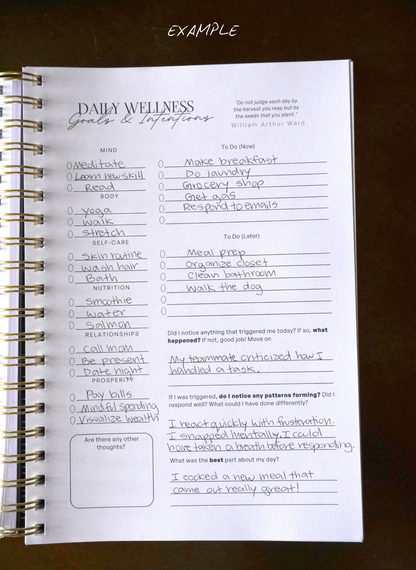 EXAMPLE
DAILY WELLNESS
Goals & Intentions
"Do not judge each day by
the harvest you reap but by
the seeds that you plant."
William Arthur Ward
MIND
Meditate
Learn new skill
Read
BODY
Yoga
Walk
Stretch
SELF-CARE
Skin routine
Wash hair
Bath
NUTRITION
Smoothie
Water
Salmon
RELATIONSHIPS
Call mom
Be present
Date night
PROSPERITY
Pay bills
Mindful spending
Visualize wealth
Are there any other
thoughts?
To Do (Now)
Make breakfast
Do laundry
Grocery shop
Get gas
Respond to emails
To Do (Later)
Meal prep
Organize closet
Clean bathroom
Walk the dog
Did I notice anything that triggered me today? If so, what
happened? If not, good job! Move on
My teammate criticized how I
handled a task.
If I was triggered, do I notice any patterns forming? Did I
respond well? What could I have done differently?
I react quickly with frustration.
I snapped mentally. I could
have taken a breath before responding.
What was the best part about my day?
I cooked a new meal that
came out really great!